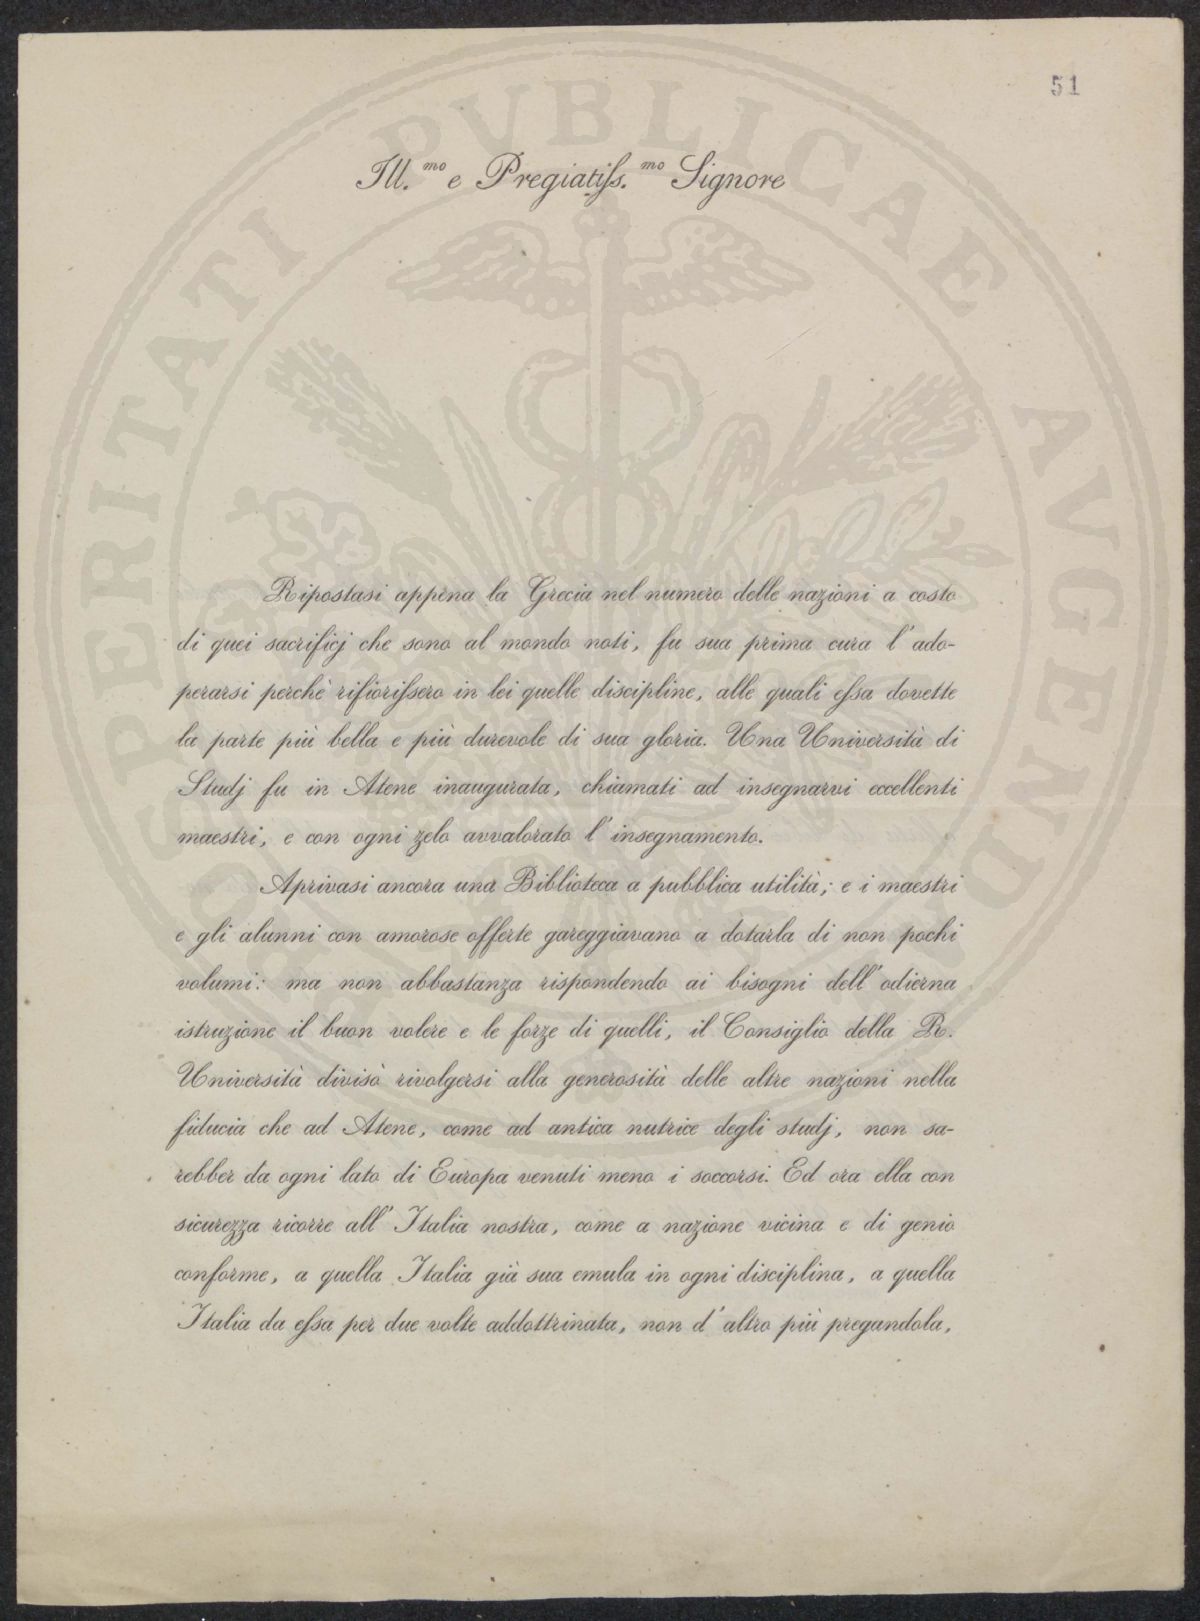 51
Ill.mo e Pregiatiss.mo Signore
Ripostasi appena la Grecia nel numero delle nazioni a costo
di quei sacrificj che sono al mondo noti, fu sua prima cura l'ado-
perarsi perchè rifiorissero in lei quelle discipline, alle quali essa dovette
la parte più bella e più durevole di sua gloria. Una Università di
Studj fu in Atene inaugurata, chiamati ad insegnarvi eccellenti
maestri, e con ogni zelo avvalorato l'insegnamento.
Aprivasi ancora una Biblioteca a pubblica utilità; e i maestri
e gli alunni con amorose offerte gareggiavano a dotarla di non pochi
volumi: ma non abbastanza rispondendo ai bisogni dell'odierna
istruzione il buon volere e le forze di quelli, il Consiglio della R.
Università divisò rivolgersi alla generosità delle altre nazioni nella
fiducia che ad Atene, come ad antica nutrice degli studj, non sa-
rebber da ogni lato di Europa venuti meno i soccorsi. Ed ora ella con
sicurezza ricorre all'Italia nostra, come a nazione vicina e di genio
conforme, a quella Italia già sua emula in ogni disciplina, a quella
Italia da essa per due volte addottrinata, non d'altro più pregandola,